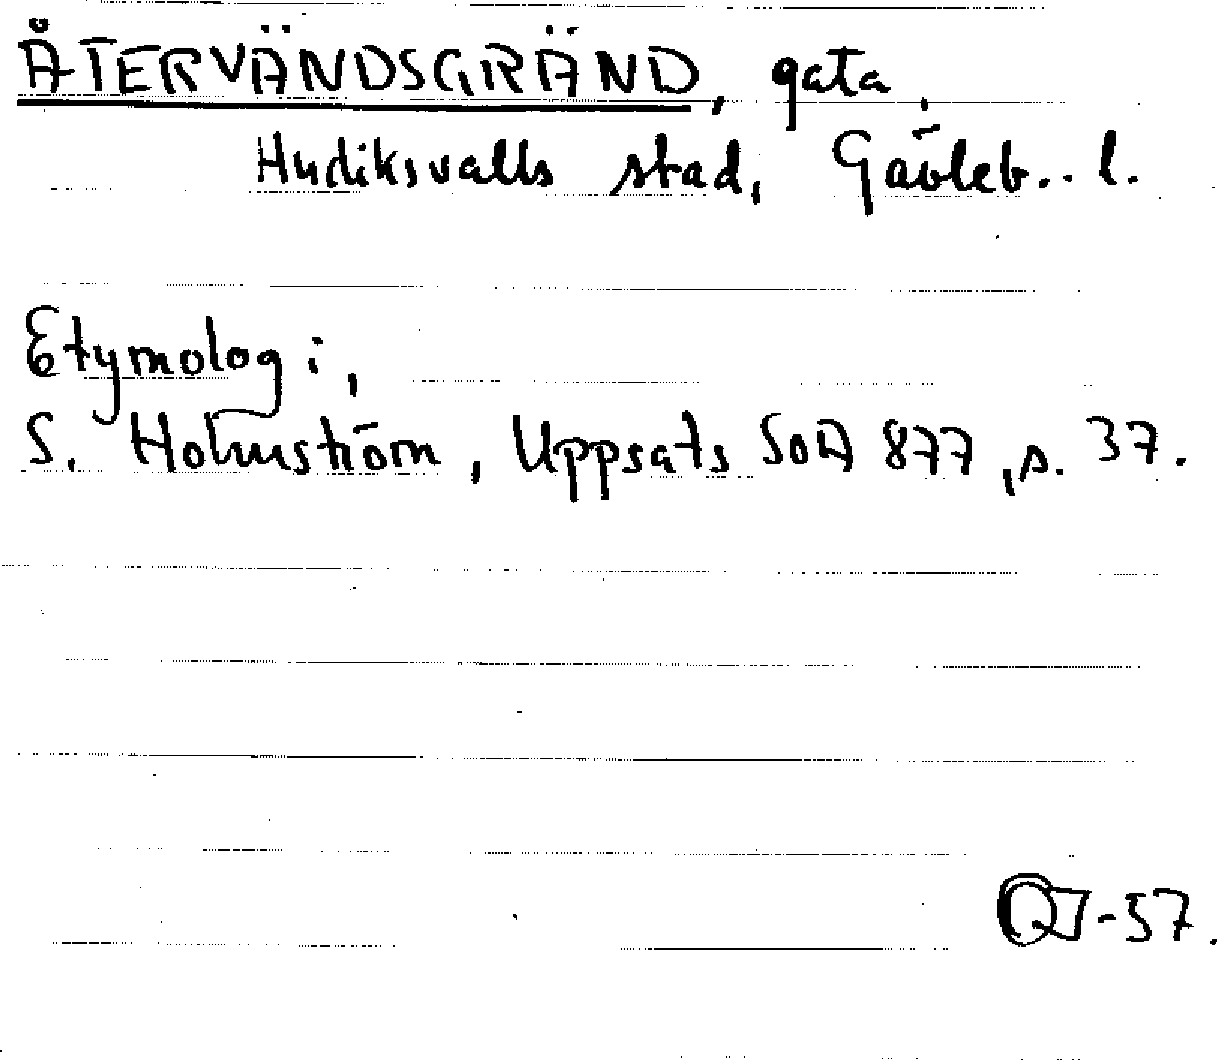 ÅTERVÄNDSGRÄND, gata,
Hudiksvalls stad, Gävleb.. l.
Etymologi,
S. Holmström, Uppsats SOA 877, s. 37.
-57.